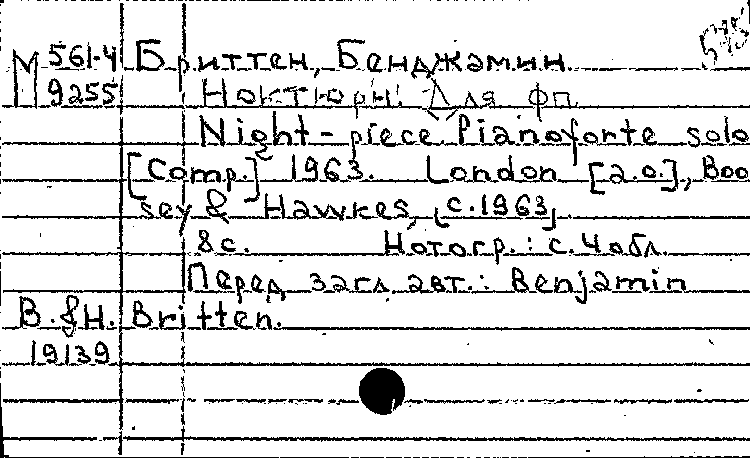 М 561-4 Бриттен, Бенджамин
9255 Ноктюрн. Для фп.
Night-piece Pianoforte solo
[Comp.] 1963. London [a.o.], Boo
sey & Hawkes, [c.1963]
8 с. Нотогр.: с. 4 обл.
Перед загл. авт.: Benjamin
B. & H. Britten.
19139